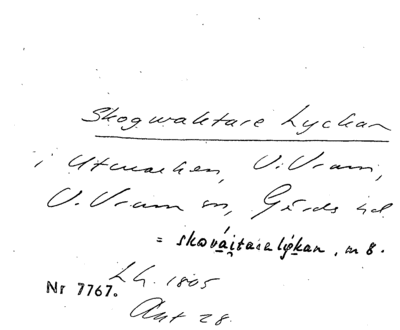 Skogwaktare Lyckan
i Utmarken, V. Vram,
V. Vram sn, Gärds hd.
= skováitarelýkan, m 8.
Lh. 1805
Nr 7767.
Akt 28.